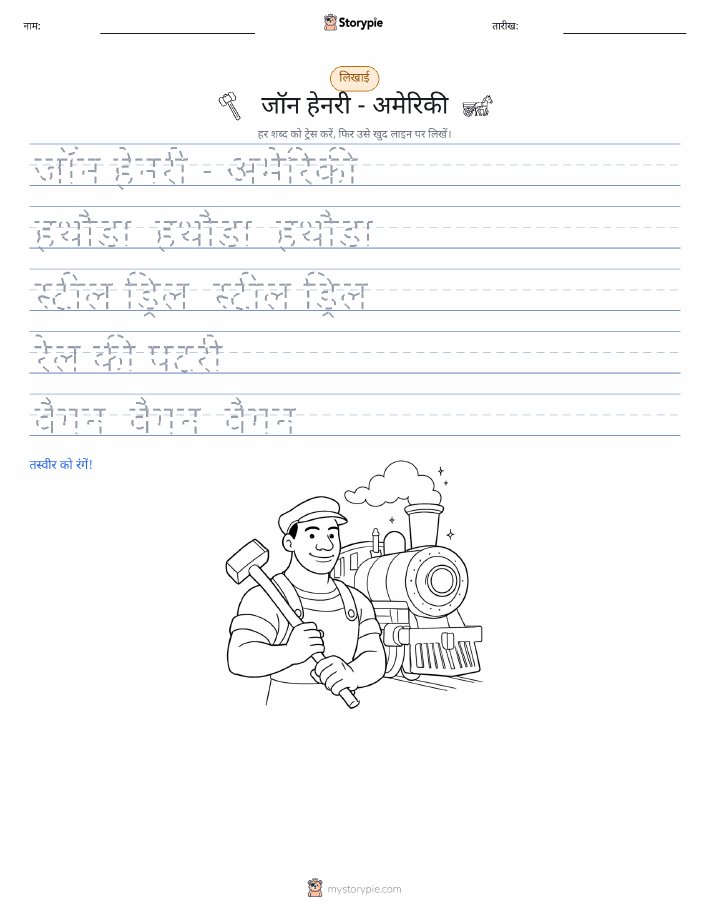 नाम:
Storypie
तारीख:
लिखाई
जॉन हेनरी - अमेरिकी
हर शब्द को ट्रेस करें, फिर उसे खुद लाइन पर लिखें।
जॉन हेनरी - अमेरिकी
हथौड़ा हथौड़ा हथौड़ा
स्टील ड्रिल स्टील ड्रिल
रेल की पटरी
वैगन वैगन वैगन
तस्वीर को रंगें!
mystorypie.com